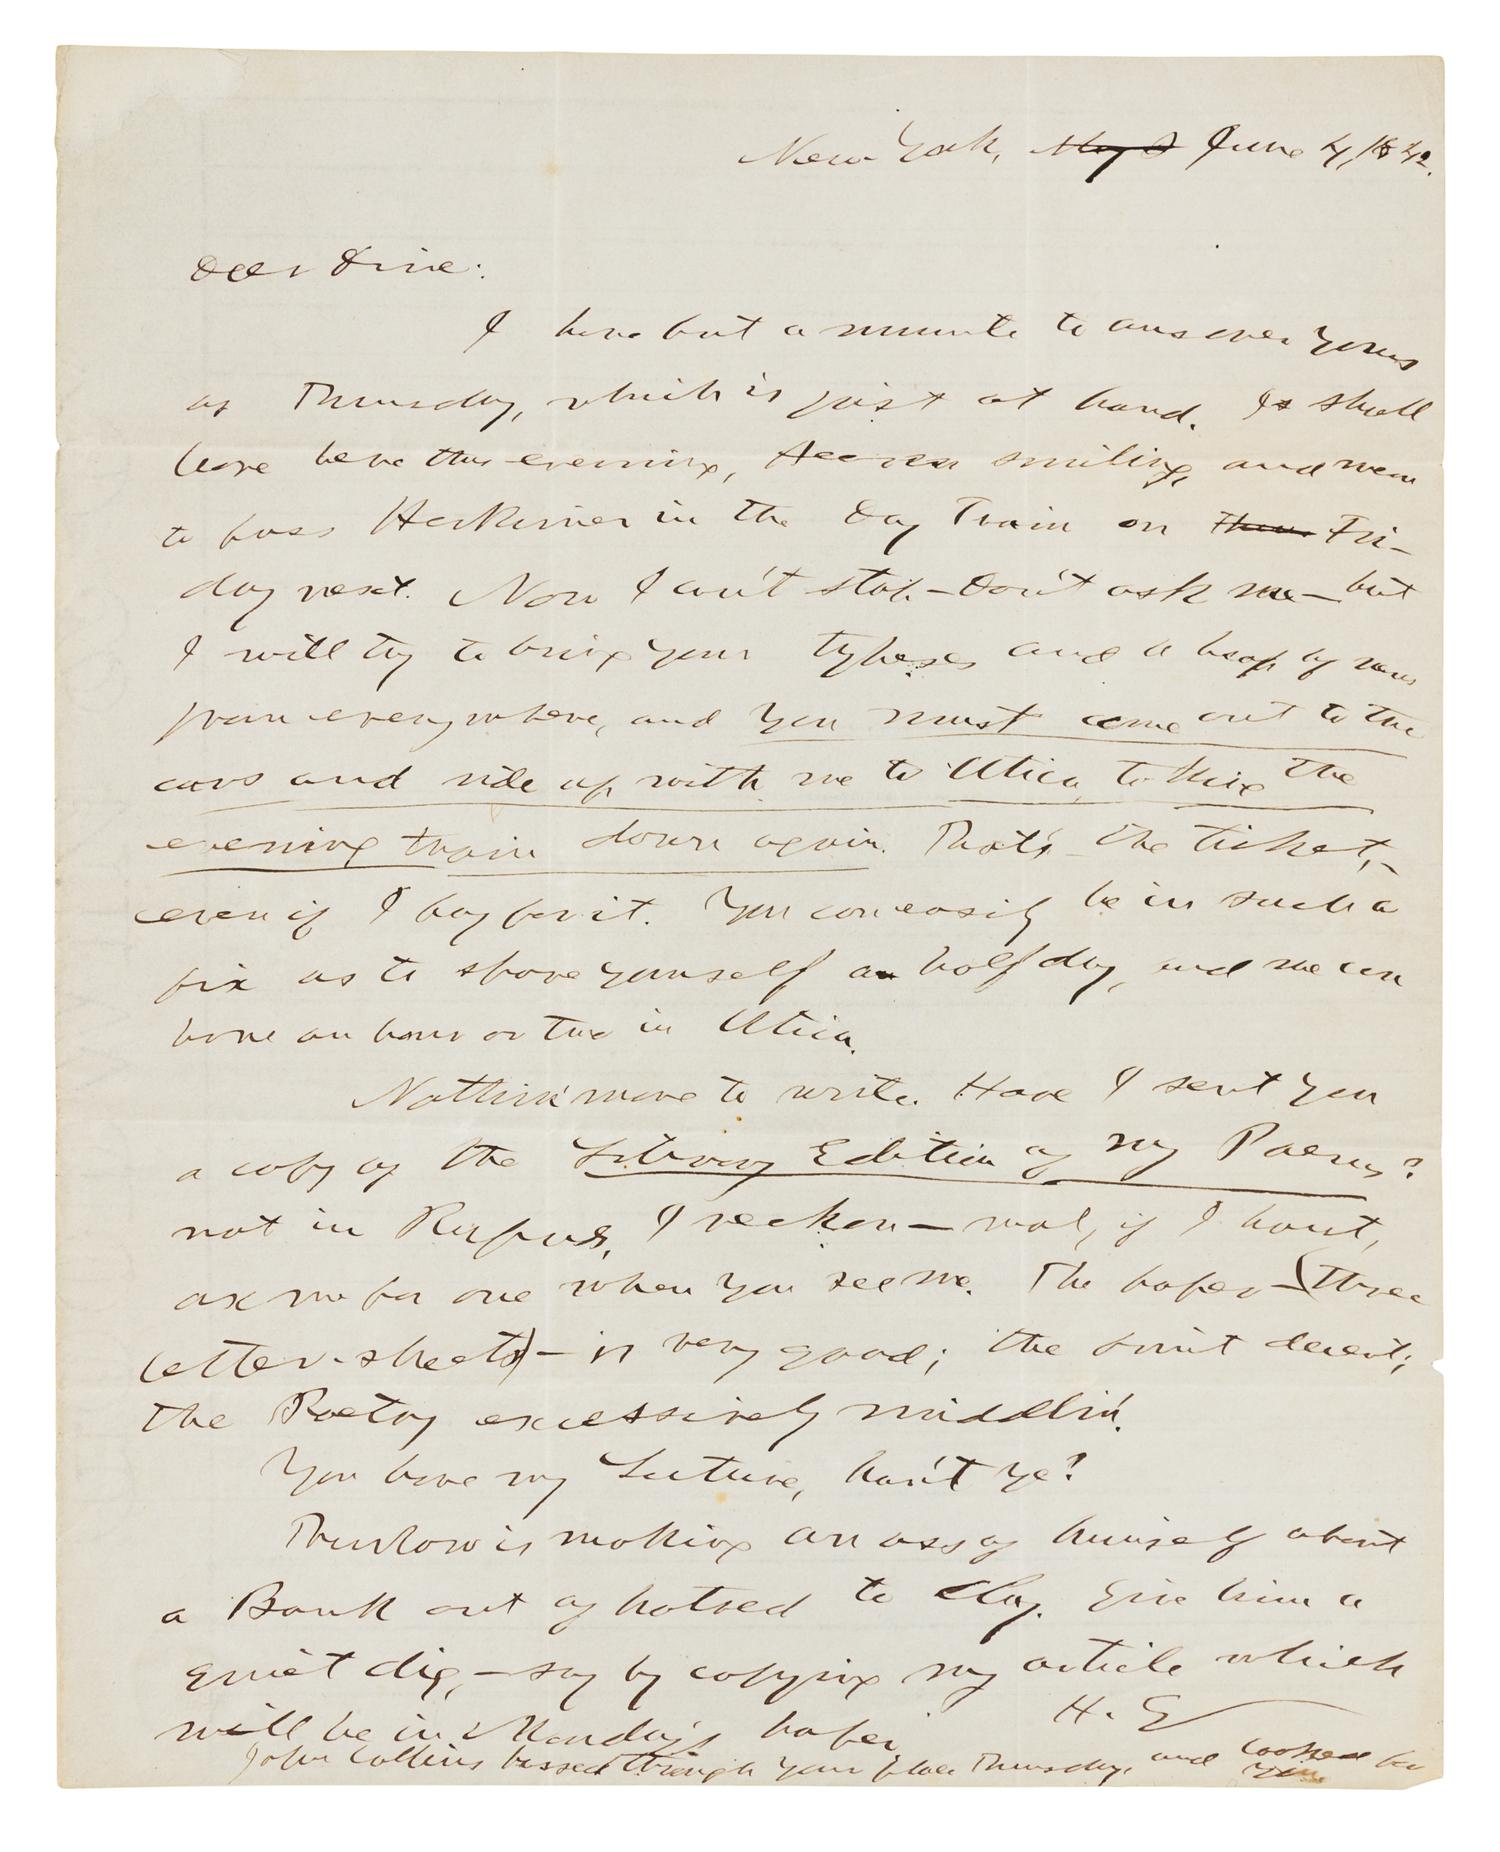 New York, May 3 June 4, 1842.
Dear
I have but a minute to answer yours
of Thursday, which is just at hand. I shall
leave here this evening, smiling, and mean
to pass Herkimer in the Day Train on Thurs Fri-
day next. Now I can't stop—don't ask me—but
I will try to bring your and a heap of news
from everywhere, and you must come out to the
cars and ride up with me to Utica, taking the
evening train down again. That's the ticket,—
even if I pay for it. You can easily be in such a
fix as to spare yourself an half day, and we can
have an hour or two in Utica.
Nothin' more to write. Have I sent you
a copy of the Library Edition of my Poems?
not in Rufus, I reckon—wal, if I haint,
ax me for one when you see me. The paper—(three
letter-sheets)—is very good; the print decent;
the Poetry excessively middlin'.
You have my Lecture, han't ye?
Thurlow is making an ass of himself about
a Bank out of hatred to Clay. Give him a
quiet dig,—say by copying my article which
will be in Monday's paper. H. G.
John Collins passed through your place Thursday, and looked for
you.